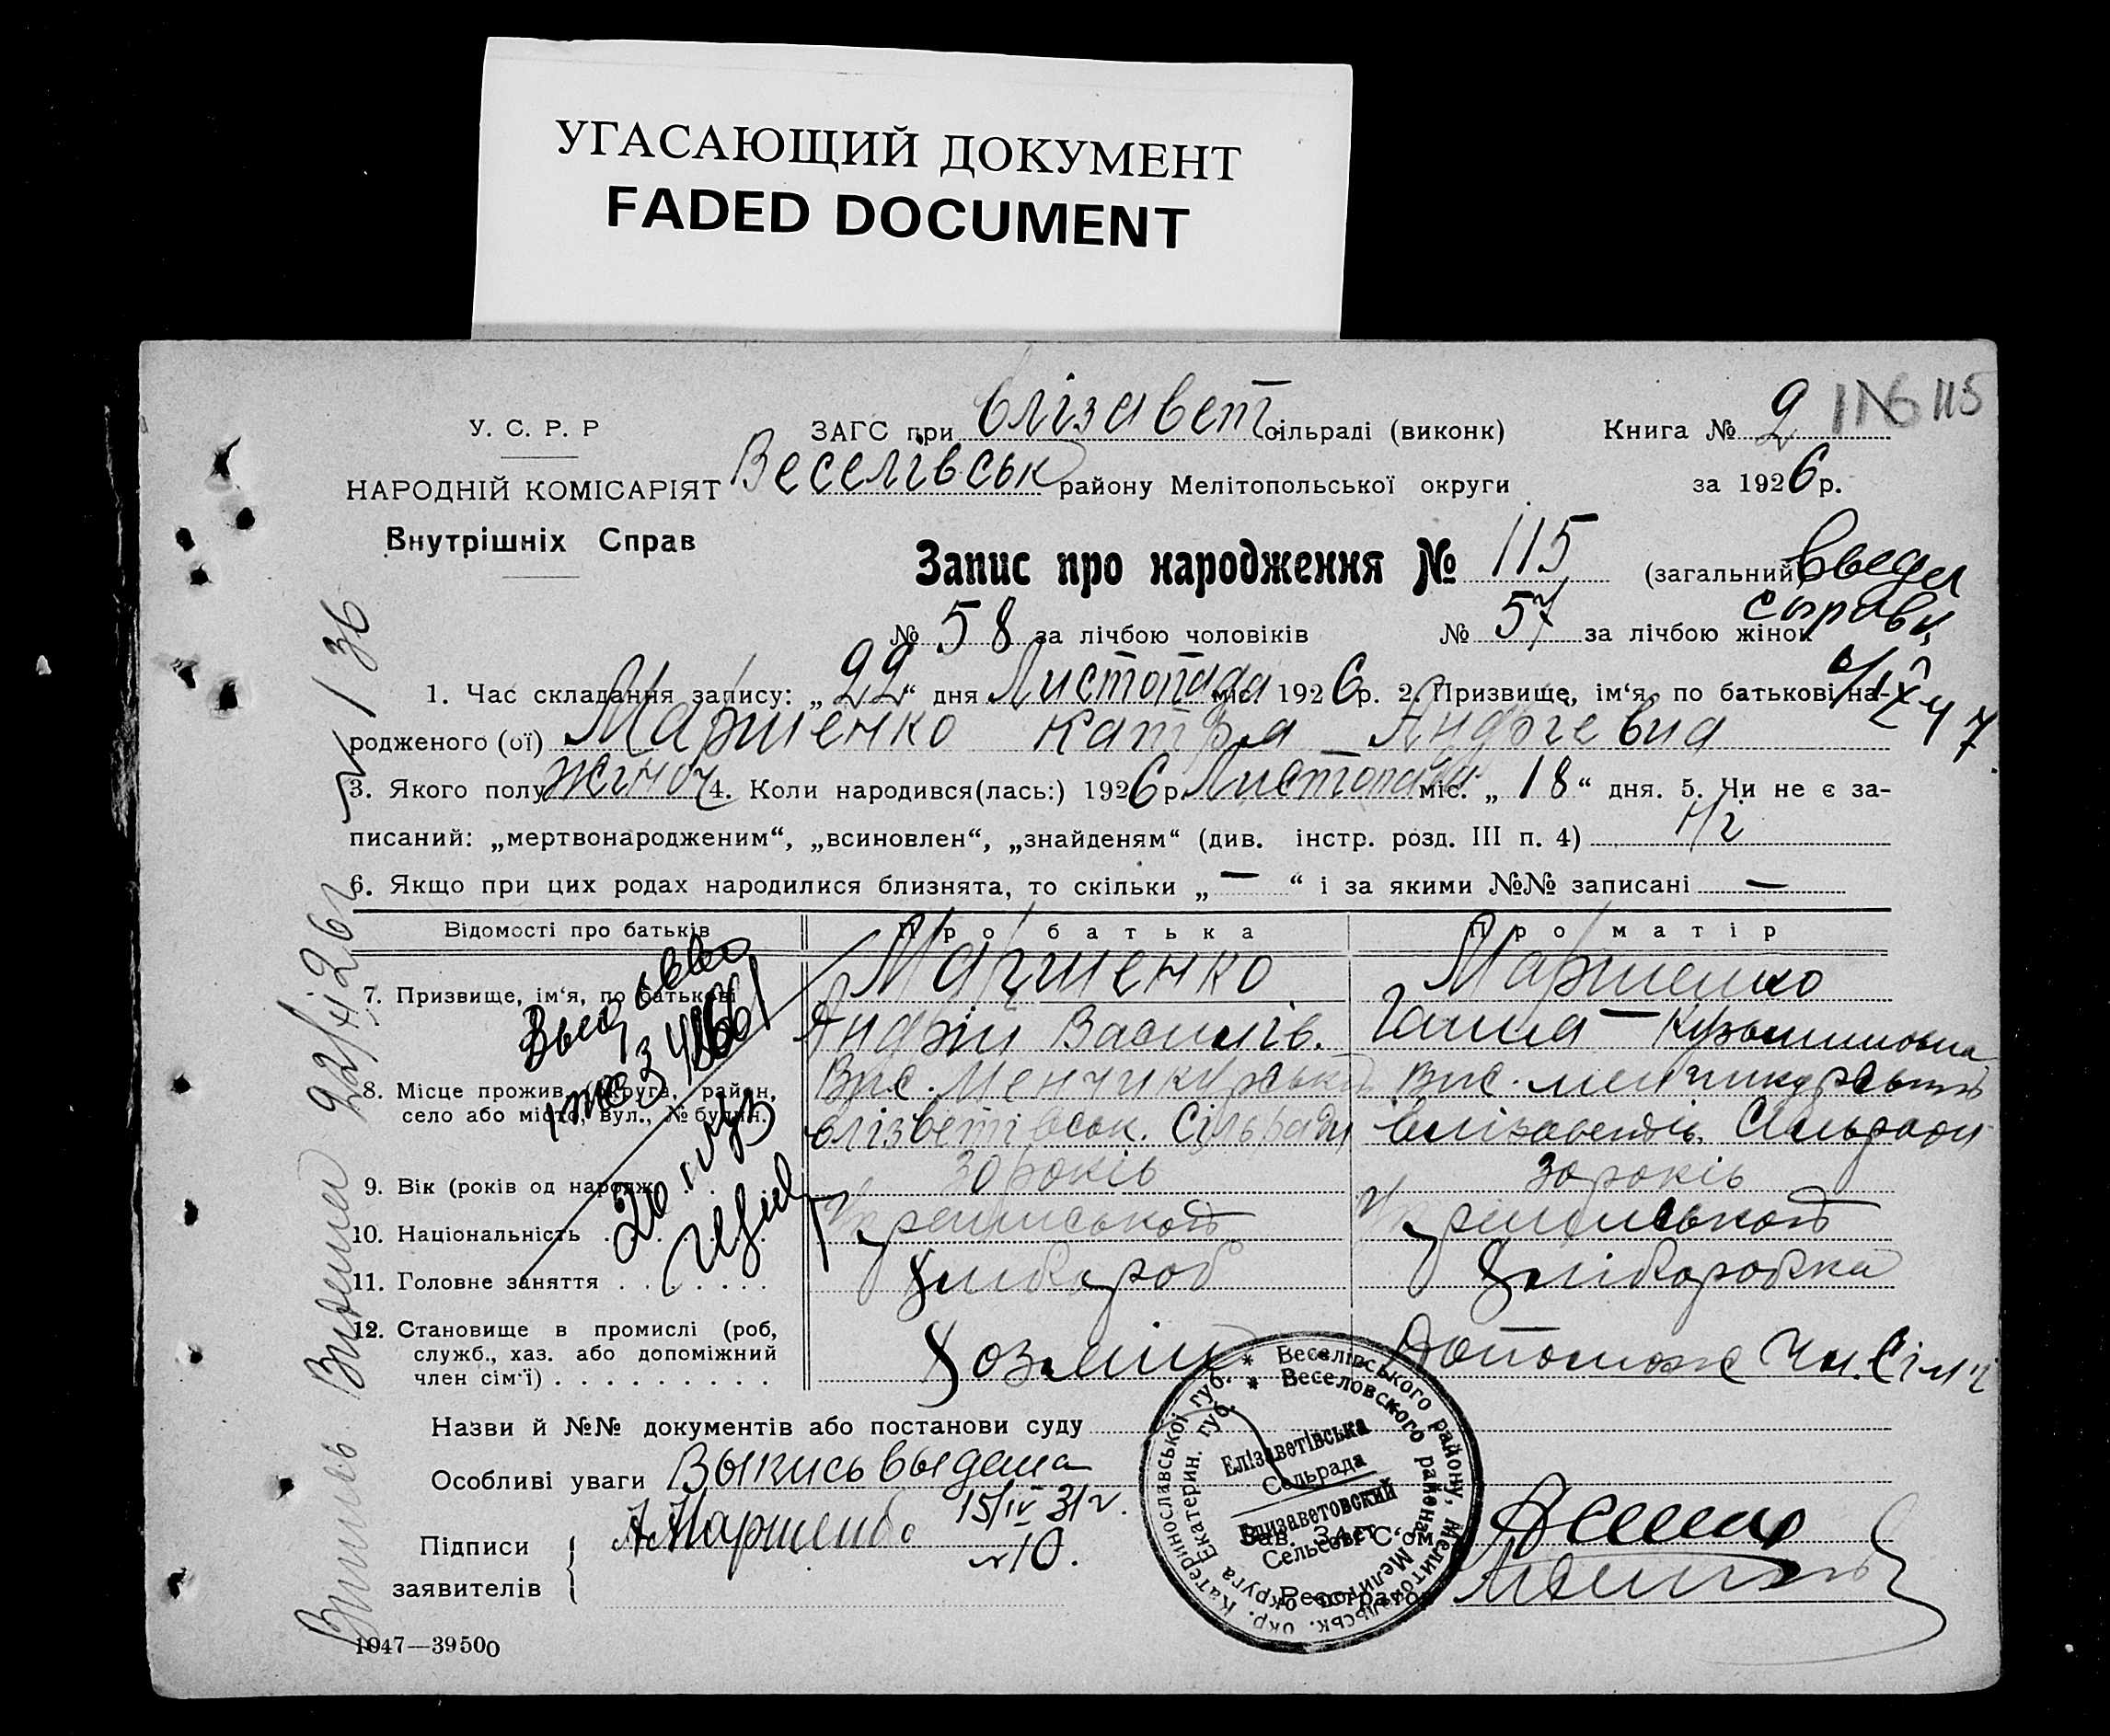 УГАСАЮЩИЙ ДОКУМЕНТ
FADED DOCUMENT
У. С. Р. Р
НАРОДНІЙ КОМІСАРІЯТ
Внутрішніх Справ
ЗАГС при Єлізавет. сільраді (виконк)
Веселівськ району Мелітопольської округи
Книга № 2 №115
за 1926 р.
Запис про народження № 115 (загальний)
№ 58 за лічбою чоловіків № 57 за лічбою жінок
1. Час складання запису: „22“ дня Листопада міс. 1926 р. 2. Призвище, ім'я, по батькові на-
родженого (ої) Маршенко Катря Андріевна
3. Якого полу жіноч 4. Коли народився(лась:) 1926 р. Листопада міс. „18“ дня. 5. Чи не є за-
писаний: „мертвонародженим“, „всиновлен“, „знайденям“ (див. інстр. розд. III п. 4) Ні
6. Якщо при цих родах народилися близнята, то скільки „—“ і за якими №№ записані —
Відомості про батьків Про батька Про матір
7. Призвище, ім'я, по батькові Маршенко Маршенко
Андрій Василів. Ганна Кузьминовна
8. Місце прожив. (округа, район, Вис. Менчикурськ Вис. Менчикурськ
село або місто, вул., № будин. Єлізветівськ. Сільради Єлізаветів. Сільради
9. Вік (років од народж. 30 років 30 років
10. Національність
11. Головне заняття . . . . . . . Хлібороб Хлібороbка
12. Становище в промислі (роб,
служб., хаз. або допоміжний
член сім'ї) . . . . . . . . . Хозяин Допомож Чл. Сім'ї
Назви й №№ документів або постанови суду
Особливі уваги Выпись выдана
15/IV 31 г.
№10.
Підписи
заявителів
А Маршенко
Зав. ЗАГС'ом
Реєстратор
Веселівського району, Мелитопольськ. окр. Катеринославської губ.
Веселовского района Мелитоп. округа Екатерин. губ.
Елізаветівська
Сельрада
Елизаветовский
Сельсовет
Випись Видана 22/XI 26 г
1047—39500